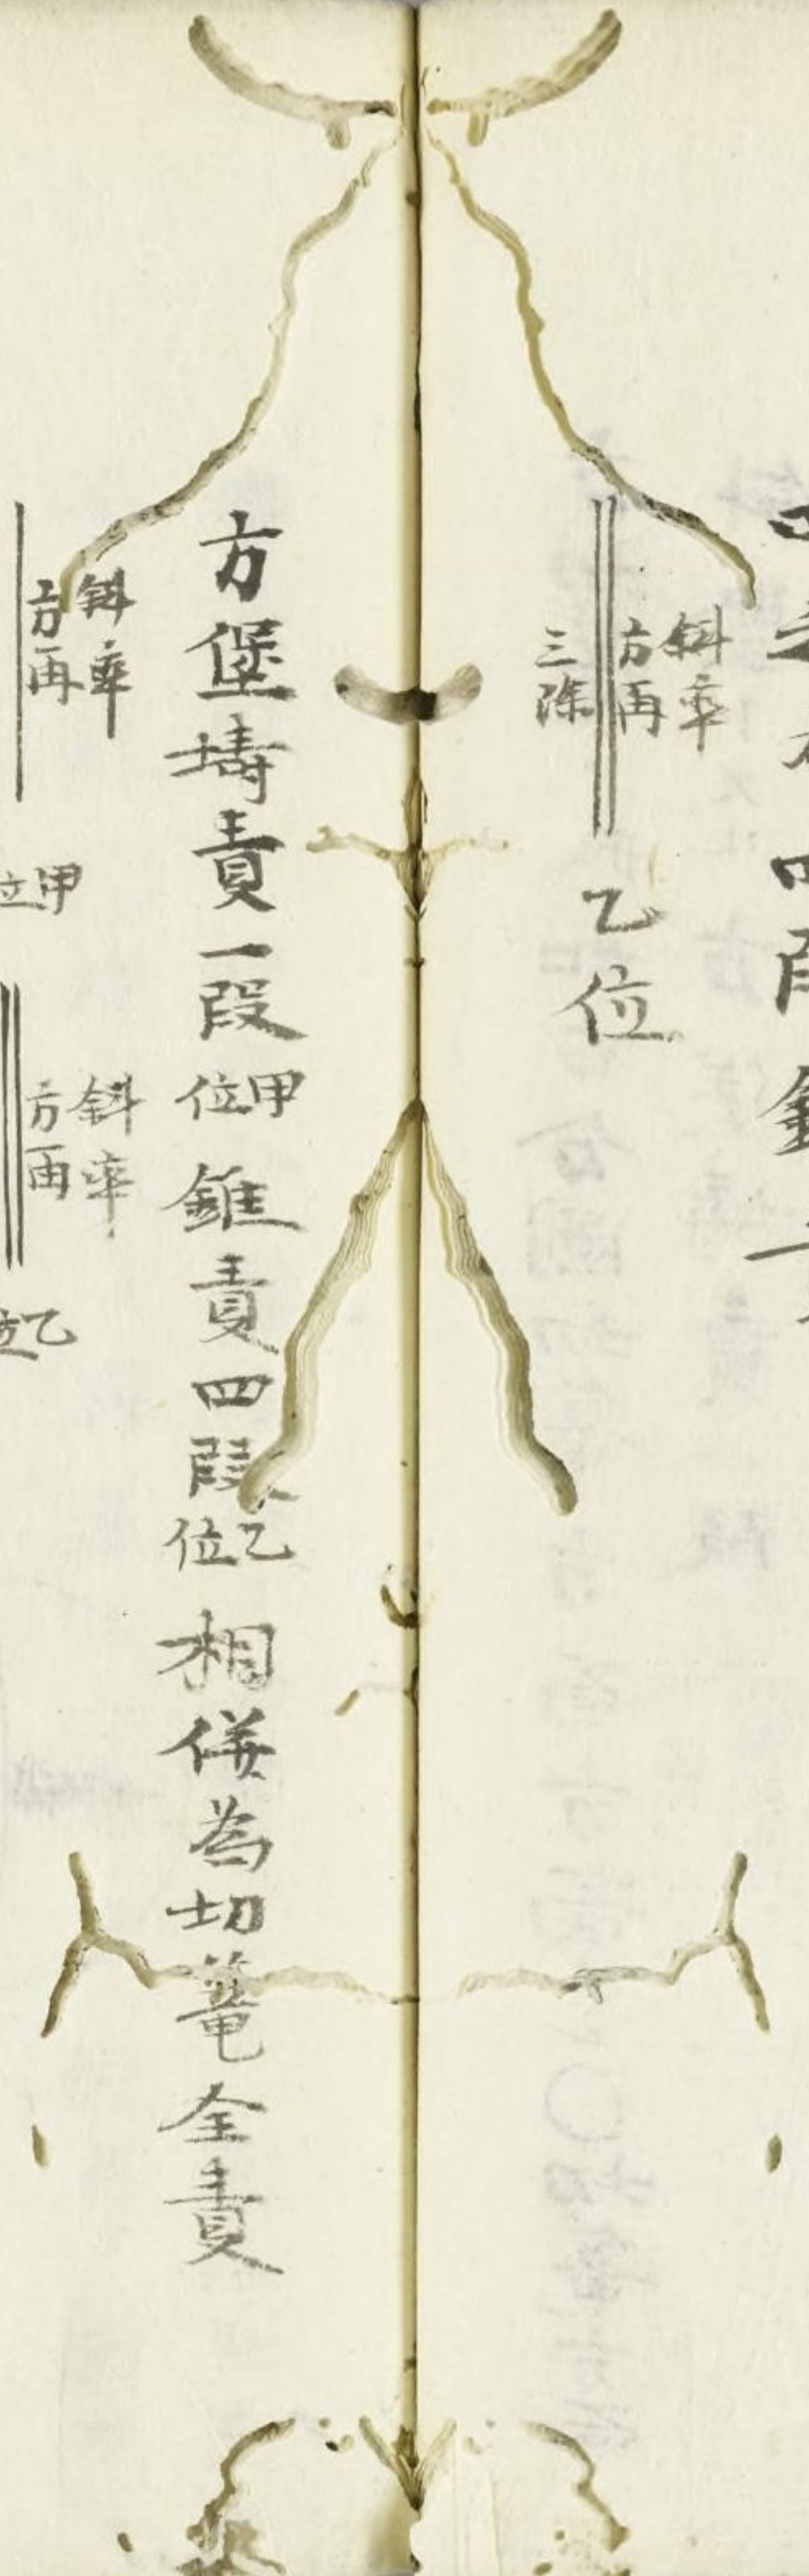 斜率
方再
三除
乙位
方堡壔責一段甲位錐責四段乙位相併為切篭全責
斜率
方再
甲位
斜率
方再
乙位